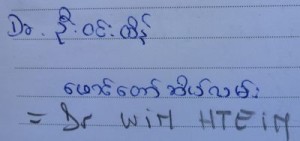 Dr. ဦးဝင်းထိန်
မောင်တော်ထိပ်လမ်း
= Dr WIM HTEIM